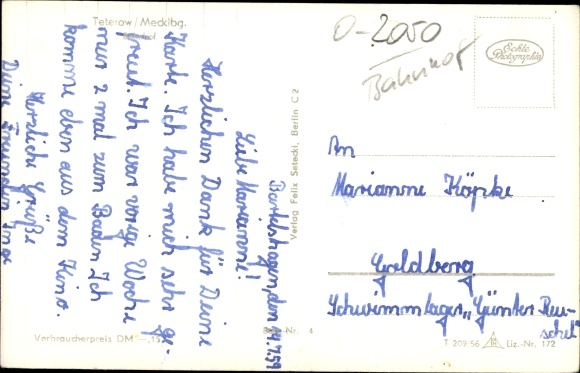 Teterow/Mecklbg.
Bahnhof
O-2050
Bahnhof
Echte
Photographie
Bartelshagen, den 14.7.59
Liebe Marianne!
Herzlichen Dank für Deine
Karte. Ich habe mich sehr ge-
freut. Ich war vorige Woche
nur 2 mal zum Baden. Ich
komme eben aus dem Kino.
Herzliche Grüße
Deine Freundin Inge
Verlag Felix Setecki, Berlin C 2
An
Marianne Köpke
Goldberg
Schwimmlager „Günter Reu-
schel"
Verbraucherpreis DM -,15
Best.-Nr. 4
T 209/56
Liz.-Nr. 172